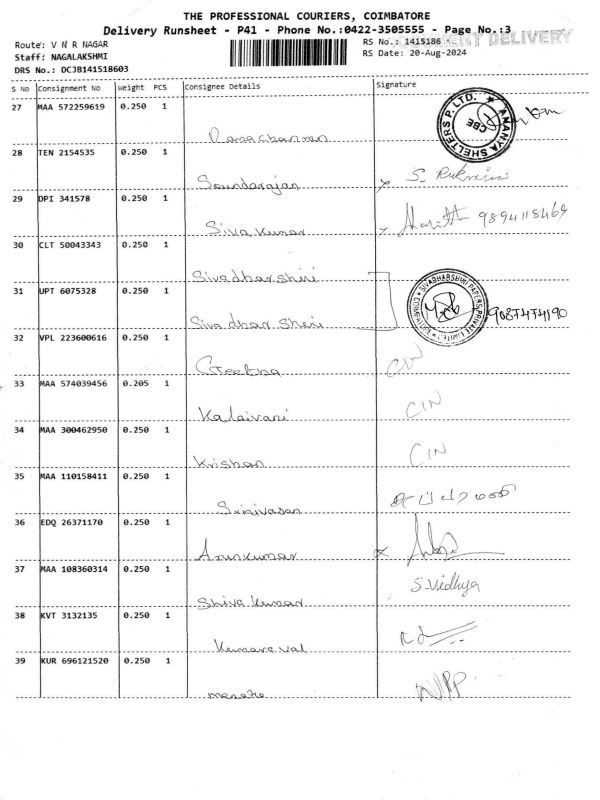 THE PROFESSIONAL COURIERS, COIMBATORE
Delivery Runsheet - P41 - Phone No.:0422-3505555 - Page No.:3
Route: V N R NAGAR
RS No.: 1415186
DELIVERY
Staff: NAGALAKSHMI
RS Date: 20-Aug-2024
DRS No.: DCJB141518603
S No Consignment No Weight PCS Consignee Details Signature
27 MAA 572259619 0.250 1
ANANYA SHELTERS P. LTD. CBE
28 TEN 2154535 0.250 1
Soundarajan S. Rukmini
29 DPI 341578 0.250 1
Siva Kumar 9894118469
30 CLT 50043343 0.250 1
Sivadharshini
31 UPT 6075328 0.250 1
SIVADHARSHINI PAPERS PRIVATE LIMITED
9087474190
Sivadharsheni
32 VPL 223600616 0.250 1
Geetha CIN
33 MAA 574039456 0.205 1
Kalaivani CIN
34 MAA 300462950 0.250 1
Krishan CIN
35 MAA 110158411 0.250 1
Srinivasan
36 EDQ 26371170 0.250 1
Arunkumar
37 MAA 108360314 0.250 1
Shiva Kumar S. Vidhya
38 KVT 3132135 0.250 1
Kumaraval
39 KUR 696121520 0.250 1